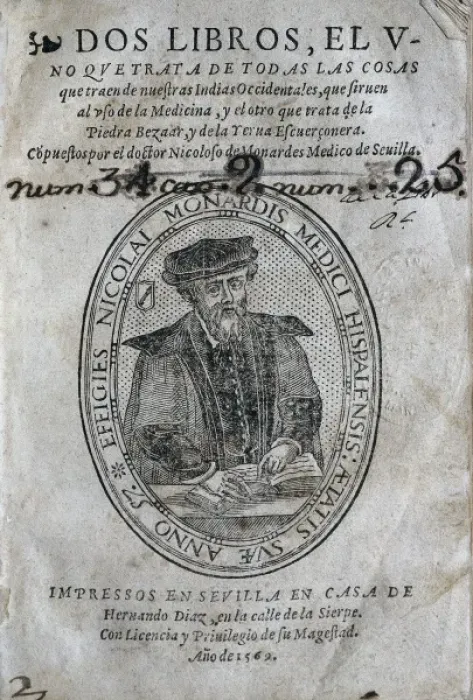 DOS LIBROS, EL V-
NO QVE TRATA DE TODAS LAS COSAS
que traen de nueſtras Indias Occidentales, que ſiruen
al vſo de la Medicina, y el otro que trata de la
Piedra Bezaar, y de la Yerua Eſcuerçonera.
Cõpueſtos por el doctor Nicoloſo de Monardes Medico de Seuilla.
num. 34 cax. 2. num... 25.
EFEIGIES NICOLAI MONARDIS MEDICI HISPALENSIS: ÆTATIS SVÆ ANNO 57.
IMPRESSOS EN SEVILLA EN CASA DE
Hernando Diaz, en la calle de la Sierpe.
Con Licencia y Priuilegio de ſu Mageſtad.
Año de 1569.
2